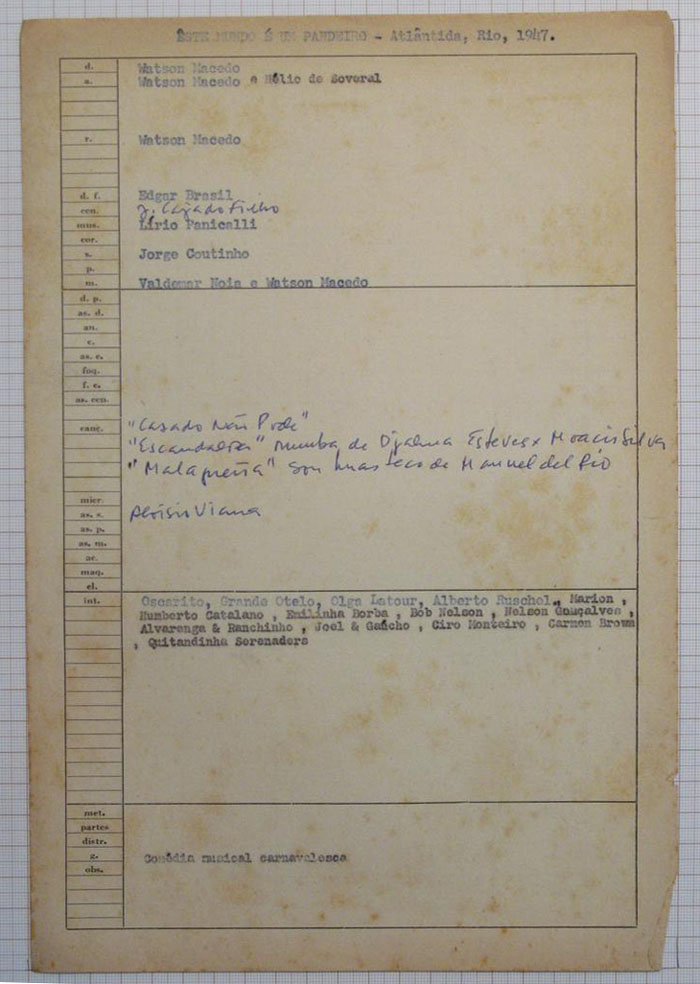 ÊSTE MUNDO É UM PANDEIRO - Atlântida, Rio, 1947.
d. Watson Macedo
a. Watson Macedo e Hélio de Soveral
r. Watson Macedo
d. f. Edgar Brasil
cen. J. Cajado Filho
mus. Lírio Panicalli
cor.
s. Jorge Coutinho
p.
m. Valdemar Noia e Watson Macedo
d. p.
as. d.
an.
c.
as. c.
foq.
f. c.
as. cen.
canç. "Casado Não Pode"
"Escandalosa" rumba de Djalma Esteves x Moacir Silva
"Malagueña" son huasteco de Manuel del Rio
micr.
as. s. Aloisio Viana
as. p.
as. m.
ac.
maq.
el.
int. Oscarito, Grande Otelo, Olga Latour, Alberto Ruschel, Marion ,
Humberto Catalano , Emilinha Borba , Bob Nelson , Nelson Gonçalves ,
Alvarenga & Ranchinho , Joel & Gaúcho , Ciro Monteiro , Carmen Brown
, Quitandinha Serenaders
met.
partes
distr.
g. Comédia musical carnavalesca
obs.